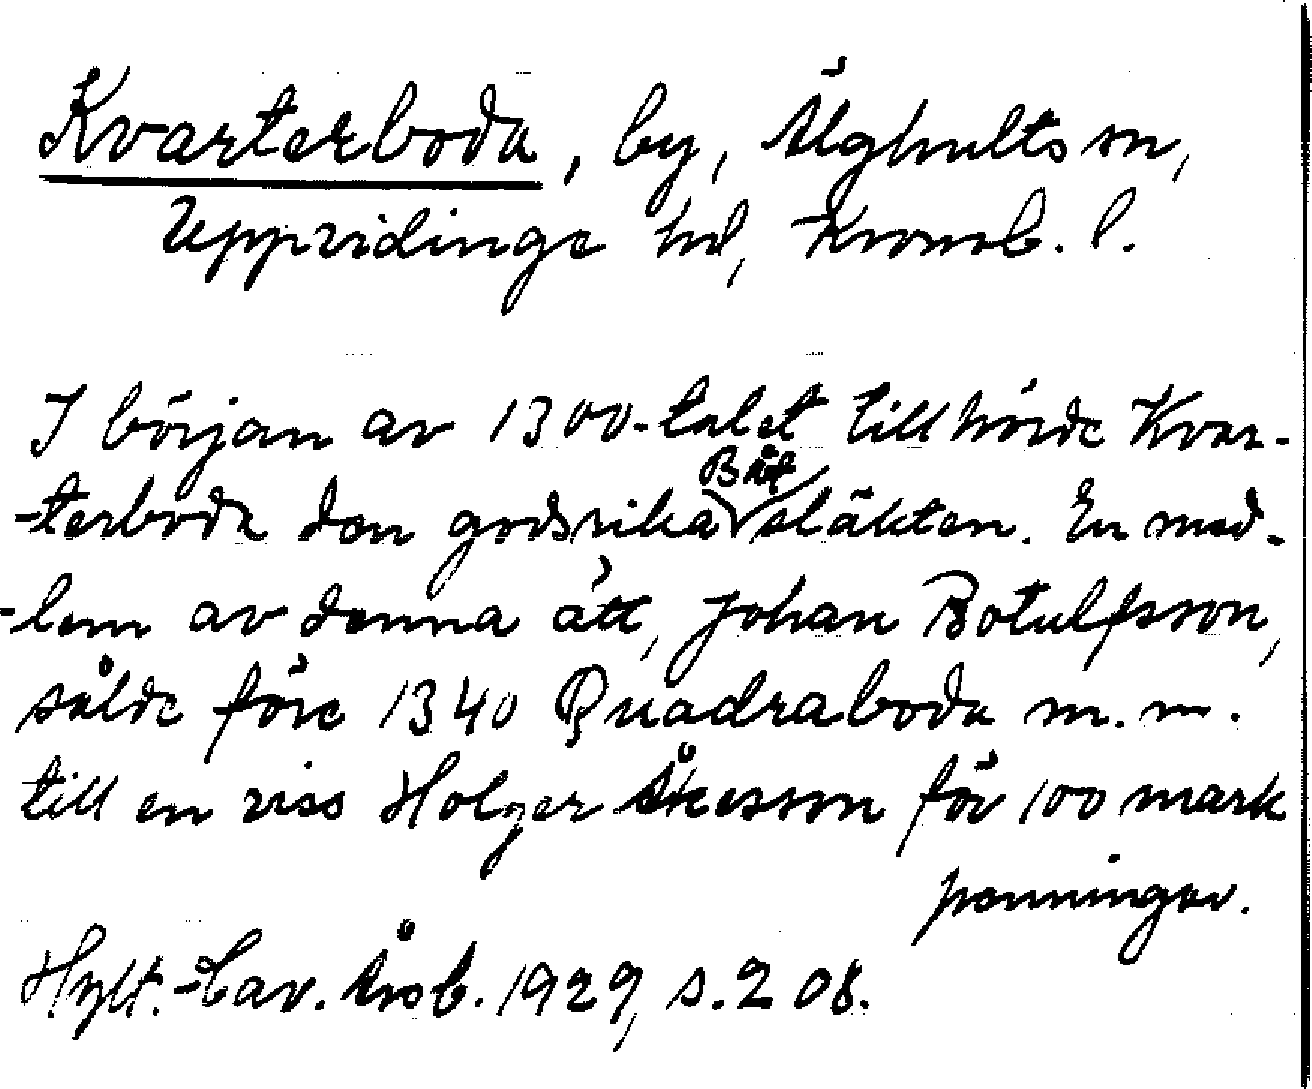 Kvarterboda, by, Älghults sn,
Uppvidinge hd, Kronob. l.
I början av 1300-talet tillhörde Kvar-
-terboda den godsrika Båt släkten. En med-
-lem av denna ätt, Johan Botulfsson,
sålde före 1340 Quadraboda m.m.
till en viss Holger Åkesson för 100 mark
penningar.
Hylt.-Cav. Årsb. 1929, s. 208.